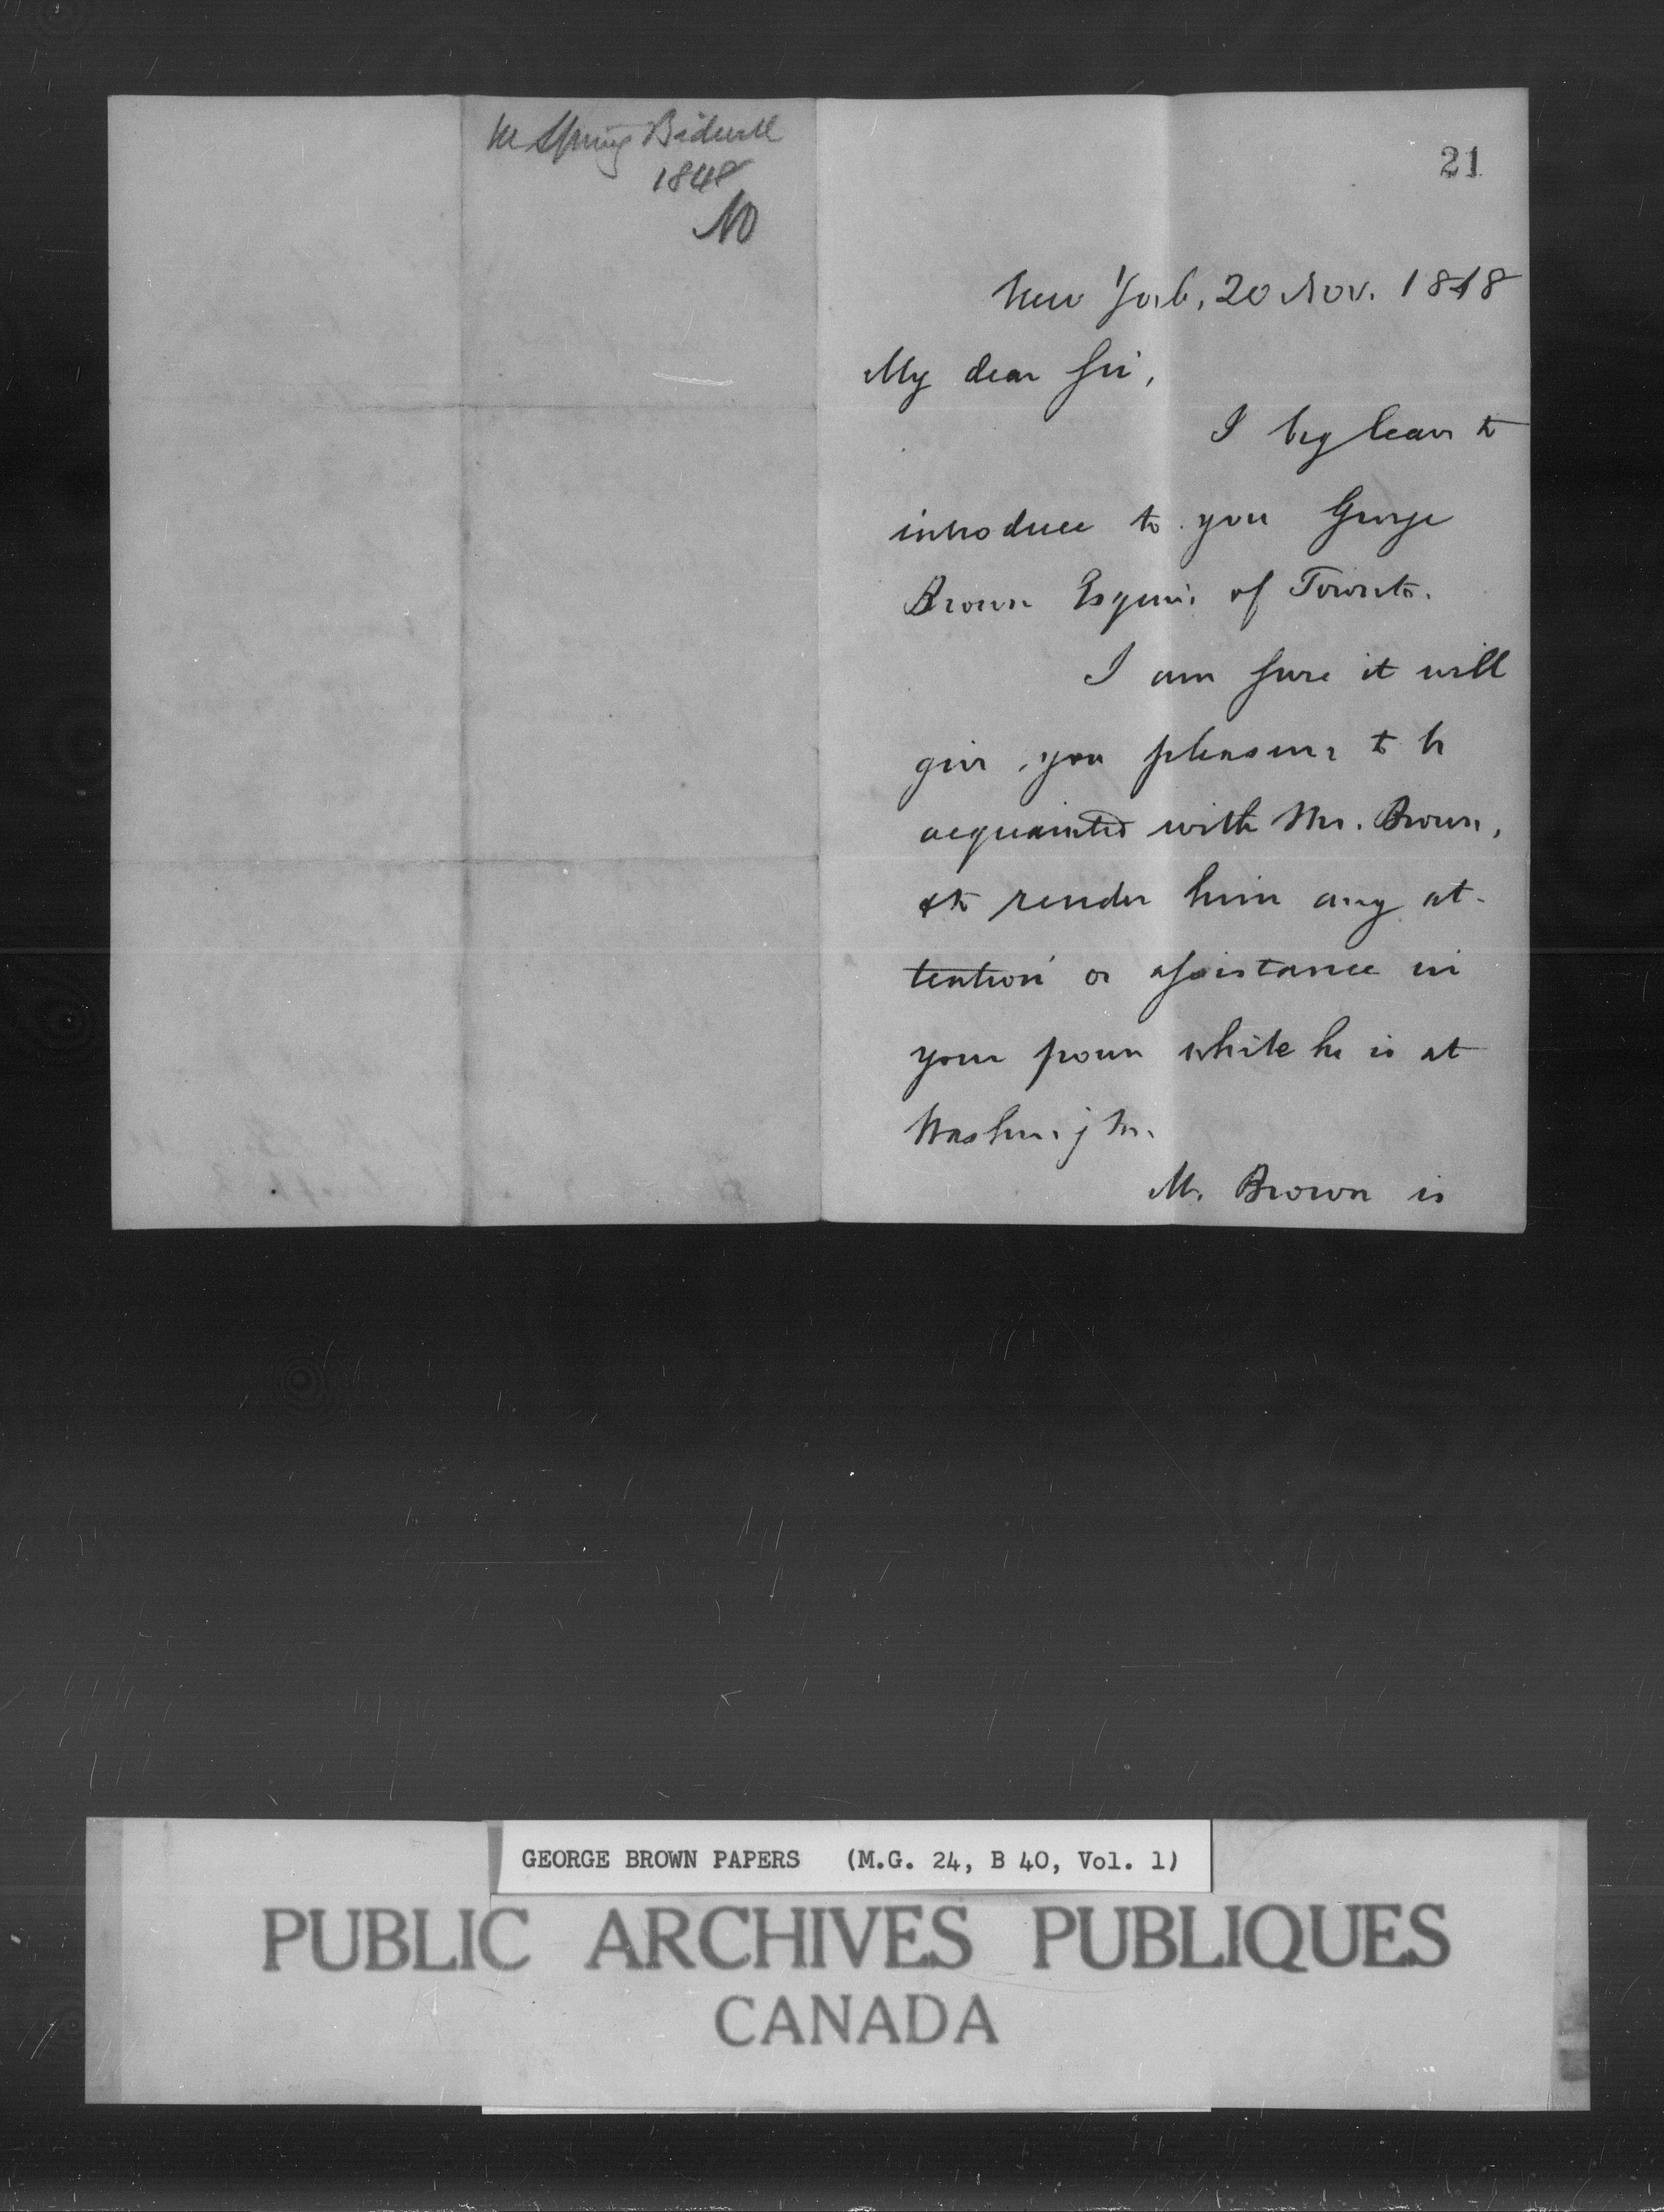 M Spring Bidwell
1848
NO
21
New York, 20 Nov. 1848
My dear Sir,
I beg leave to
introduce to you George
Brown Esquire of Toronto.
I am sure it will
give you pleasure to be
acquainted with Mr. Brown,
& to render him any at-
tention or assistance in
your power while he is at
Washington.
Mr. Brown is
GEORGE BROWN PAPERS (M.G. 24, B 40, Vol. 1)
PUBLIC ARCHIVES PUBLIQUES
CANADA